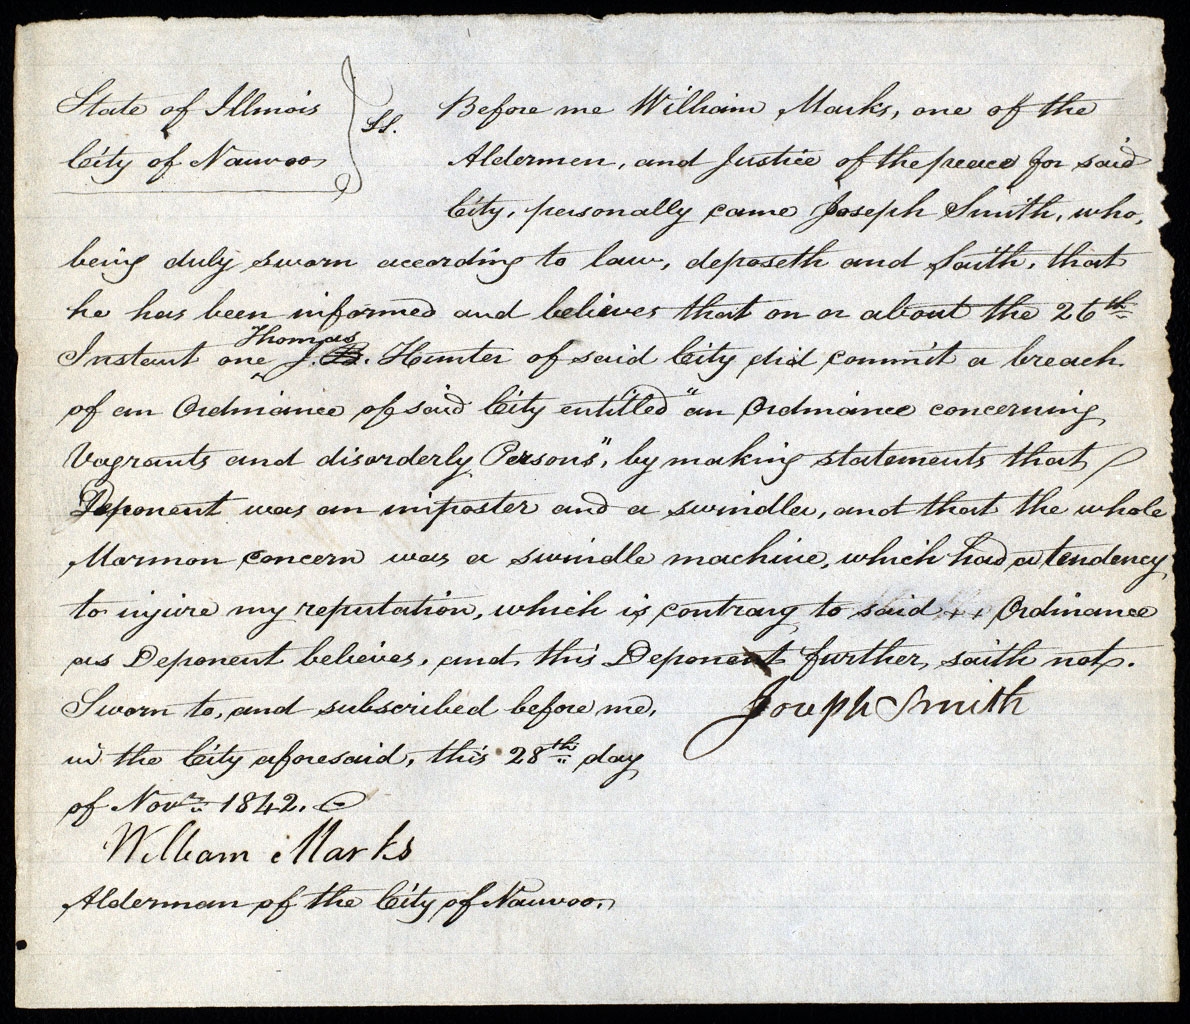 State of Illinois } ss. Before me William Marks, one of the
City of Nauvoo Aldermen, and Justice of the peace for said
City, personally came Joseph Smith, who,
being duly sworn according to law, deposeth and saith, that
he has been informed and believes that on or about the 26th
Instant one Thomas J. Hunter of said City did commit a breach
of an Ordinance of said City entitled "an Ordinance concerning
Vagrants and disorderly Persons", by making statements that
Deponent was an imposter and a swindler, and that the whole
Mormon concern was a swindle machine, which had a tendency
to injure my reputation, which is contrary to said Ordinance
as Deponent believes, and this Deponent further saith not.
Sworn to, and subscribed before me, Joseph Smith
in the City aforesaid, this 28th day
of Novr 1842.
William Marks
Alderman of the City of Nauvoo,